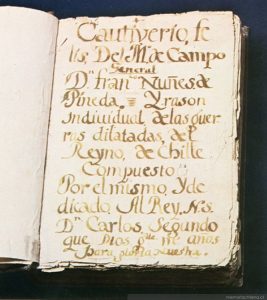 Cautiverio, fe
lis, Del M.ᵉ de Campo
General
Dⁿ. franᶜᵒ. Nuñes de
Pineda. Y rason
Indiuidual de las guer
ras dilatadas, del
Reyno, de Chille
Compuesto
Por el mismo, Y de
dicado, Al Rey. N. S.
Dⁿ. Carlos, Segundo
que Dios gᵈᵉ mᵉ años
Para
memoriachilena.cl